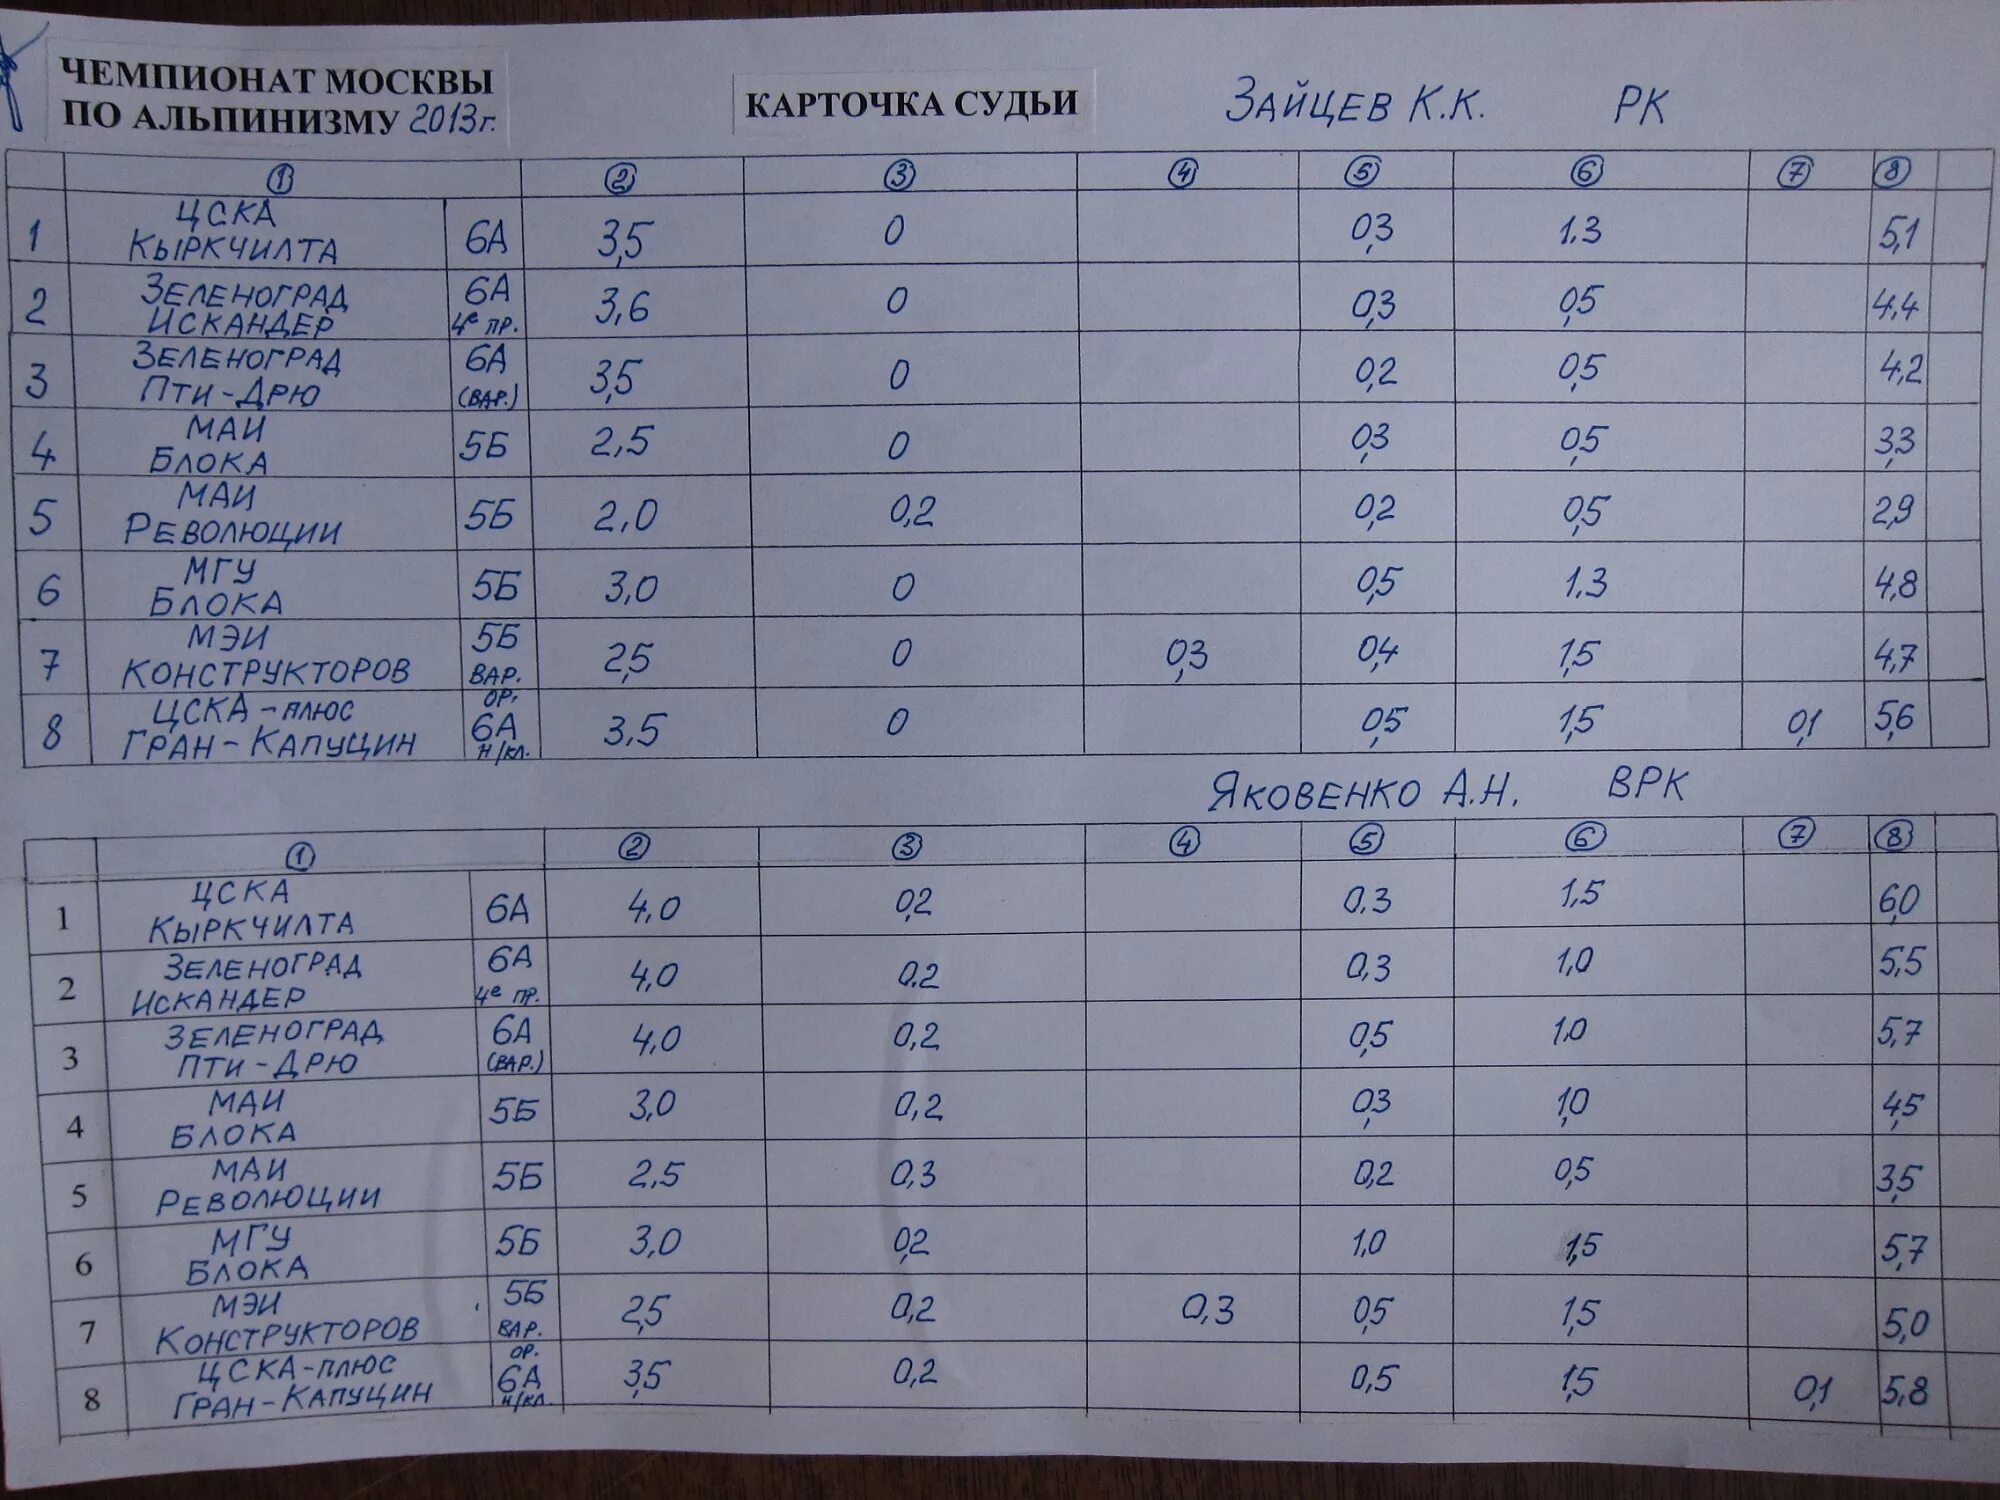 ЧЕМПИОНАТ МОСКВЫ
ПО АЛЬПИНИЗМУ 2013г.
КАРТОЧКА СУДЬИ
ЗАЙЦЕВ К.К. РК
1 2 3 4 5 6 7 8
1 ЦСКА КЫРКЧИЛТА 6А 3,5 0 0,3 1.3 5,1
2 ЗЕЛЕНОГРАД ИСКАНДЕР 6А 4е ПР. 3,6 0 0,3 0,5 4,4
3 ЗЕЛЕНОГРАД ПТИ-ДРЮ 6А (ВАР.) 3,5 0 0,2 0,5 4,2
4 МАИ БЛОКА 5Б 2,5 0 0,3 0,5 3,3
5 МАИ РЕВОЛЮЦИИ 5Б 2,0 0,2 0,2 0,5 2,9
6 МГУ БЛОКА 5Б 3,0 0 0,5 1.3 4,8
7 МЭИ КОНСТРУКТОРОВ 5Б ВАР. 2,5 0 0,3 0,4 1,5 4,7
8 ЦСКА-ПЛЮС ГРАН-КАПУЦИН ОР. 6А Н/КЛ. 3,5 0 0,5 1,5 0,1 5,6
ЯКОВЕНКО А.Н. ВРК
1 2 3 4 5 6 7 8
1 ЦСКА КЫРКЧИЛТА 6А 4,0 0,2 0,3 1,5 6,0
2 ЗЕЛЕНОГРАД ИСКАНДЕР 6А 4е ПР. 4,0 0.2 0,3 1,0 5,5
3 ЗЕЛЕНОГРАД ПТИ-ДРЮ 6А (ВАР.) 4,0 0,2 0,5 1.0 5,7
4 МАИ БЛОКА 5Б 3,0 0,2 0,3 1,0 4,5
5 МАИ РЕВОЛЮЦИИ 5Б 2,5 0,3 0,2 0,5 3,5
6 МГУ БЛОКА 5Б 3,0 0,2 1,0 1,5 5,7
7 МЭИ КОНСТРУКТОРОВ 5Б ВАР. 2,5 0,2 0,3 0,5 1,5 5,0
8 ЦСКА-ПЛЮС ГРАН-КАПУЦИН ОР. 6А Н/КЛ. 3,5 0,2 0,5 1,5 0,1 5,8